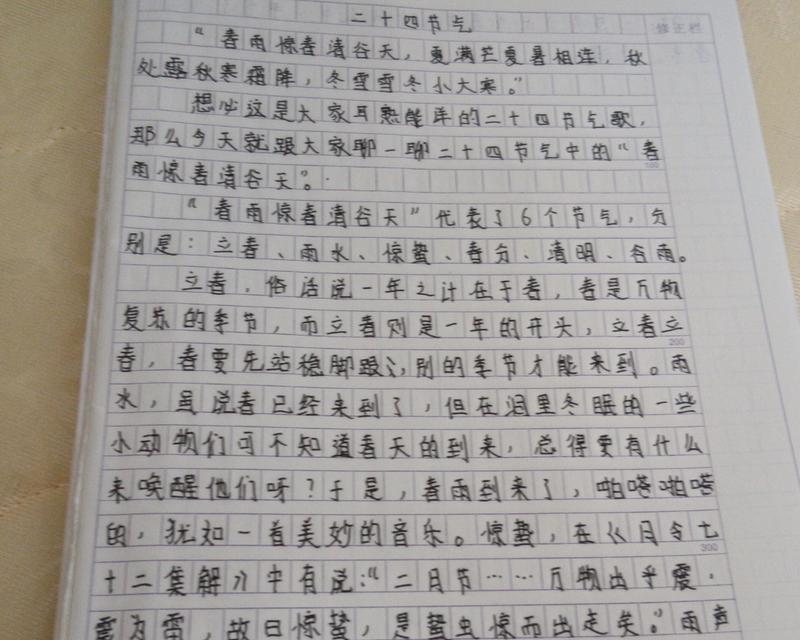 二十四节气
修正栏
“春雨惊春清谷天，夏满芒夏暑相连，秋
处露秋寒霜降，冬雪雪冬小大寒。”
想必这是大家耳熟能详的二十四节气歌，
那么今天就跟大家聊一聊二十四节气中的“春
雨惊春清谷天”。
“春雨惊春清谷天”代表了6个节气，分
别是：立春、雨水、惊蛰、春分、清明、谷雨。
立春，俗话说一年之计在于春，春是万物
复苏的季节，而立春则是一年的开头，立春立
200
春，春要先站稳脚跟，别的季节才能来到。雨
水，虽说春已经来到了，但在洞里冬眠的一些
小动物们可不知道春天的到来，总得要有什么
来唤醒他们呀？于是，春雨到来了，啪嗒啪嗒
的，犹如一首美妙的音乐。惊蛰，在《月令七
300
十二集解》中有说：“二月节……万物出乎震，
震为雷，故曰惊蛰，是蛰虫惊而出走矣。”雨声